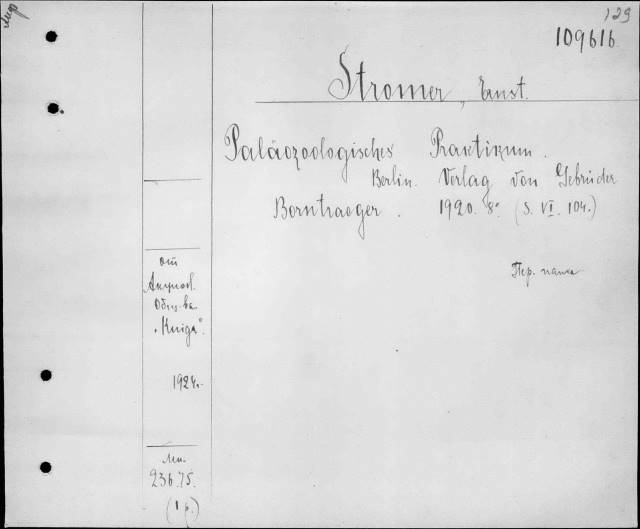 129
109616
Stromer, Ernst.
Paläozoologisches Praktikum.
Berlin. Verlag von Gebrüder
Borntraeger. 1920. 8° (S. VI. 104.)
Пер. папка
от
Акціон.
Общ-ва
„Книга“.
1924 г.
236.75.
(1 р.)